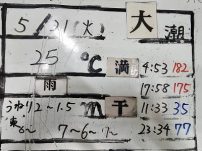 5/21(火) 大潮
25℃ 満 4:53 182
17:58 175
雨 干 11:33 35
うねり2~1.5m
23:34 77
東 6~ 7~6~ 7~